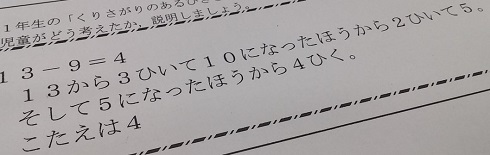 1年生の「くりさがりのあるひき
児童がどう考えたか、説明しましょう。
13－9＝4
13から3ひいて10になったほうから2ひいて5。
そして5になったほうから4ひく。
こたえは4